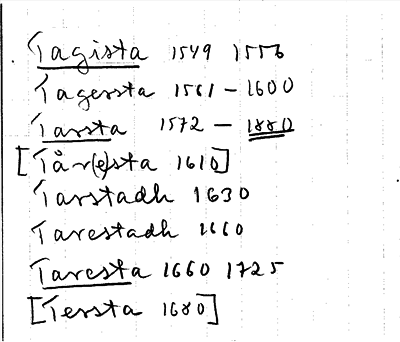 Tagista 1549 1556
Tagersta 1561 - 1600
Tarsta 1572 - 1880
[Tår(e)sta 1610]
Tarstadh 1630
Tarestadh 1660
Taresta 1660 1725
[Tersta 1680]